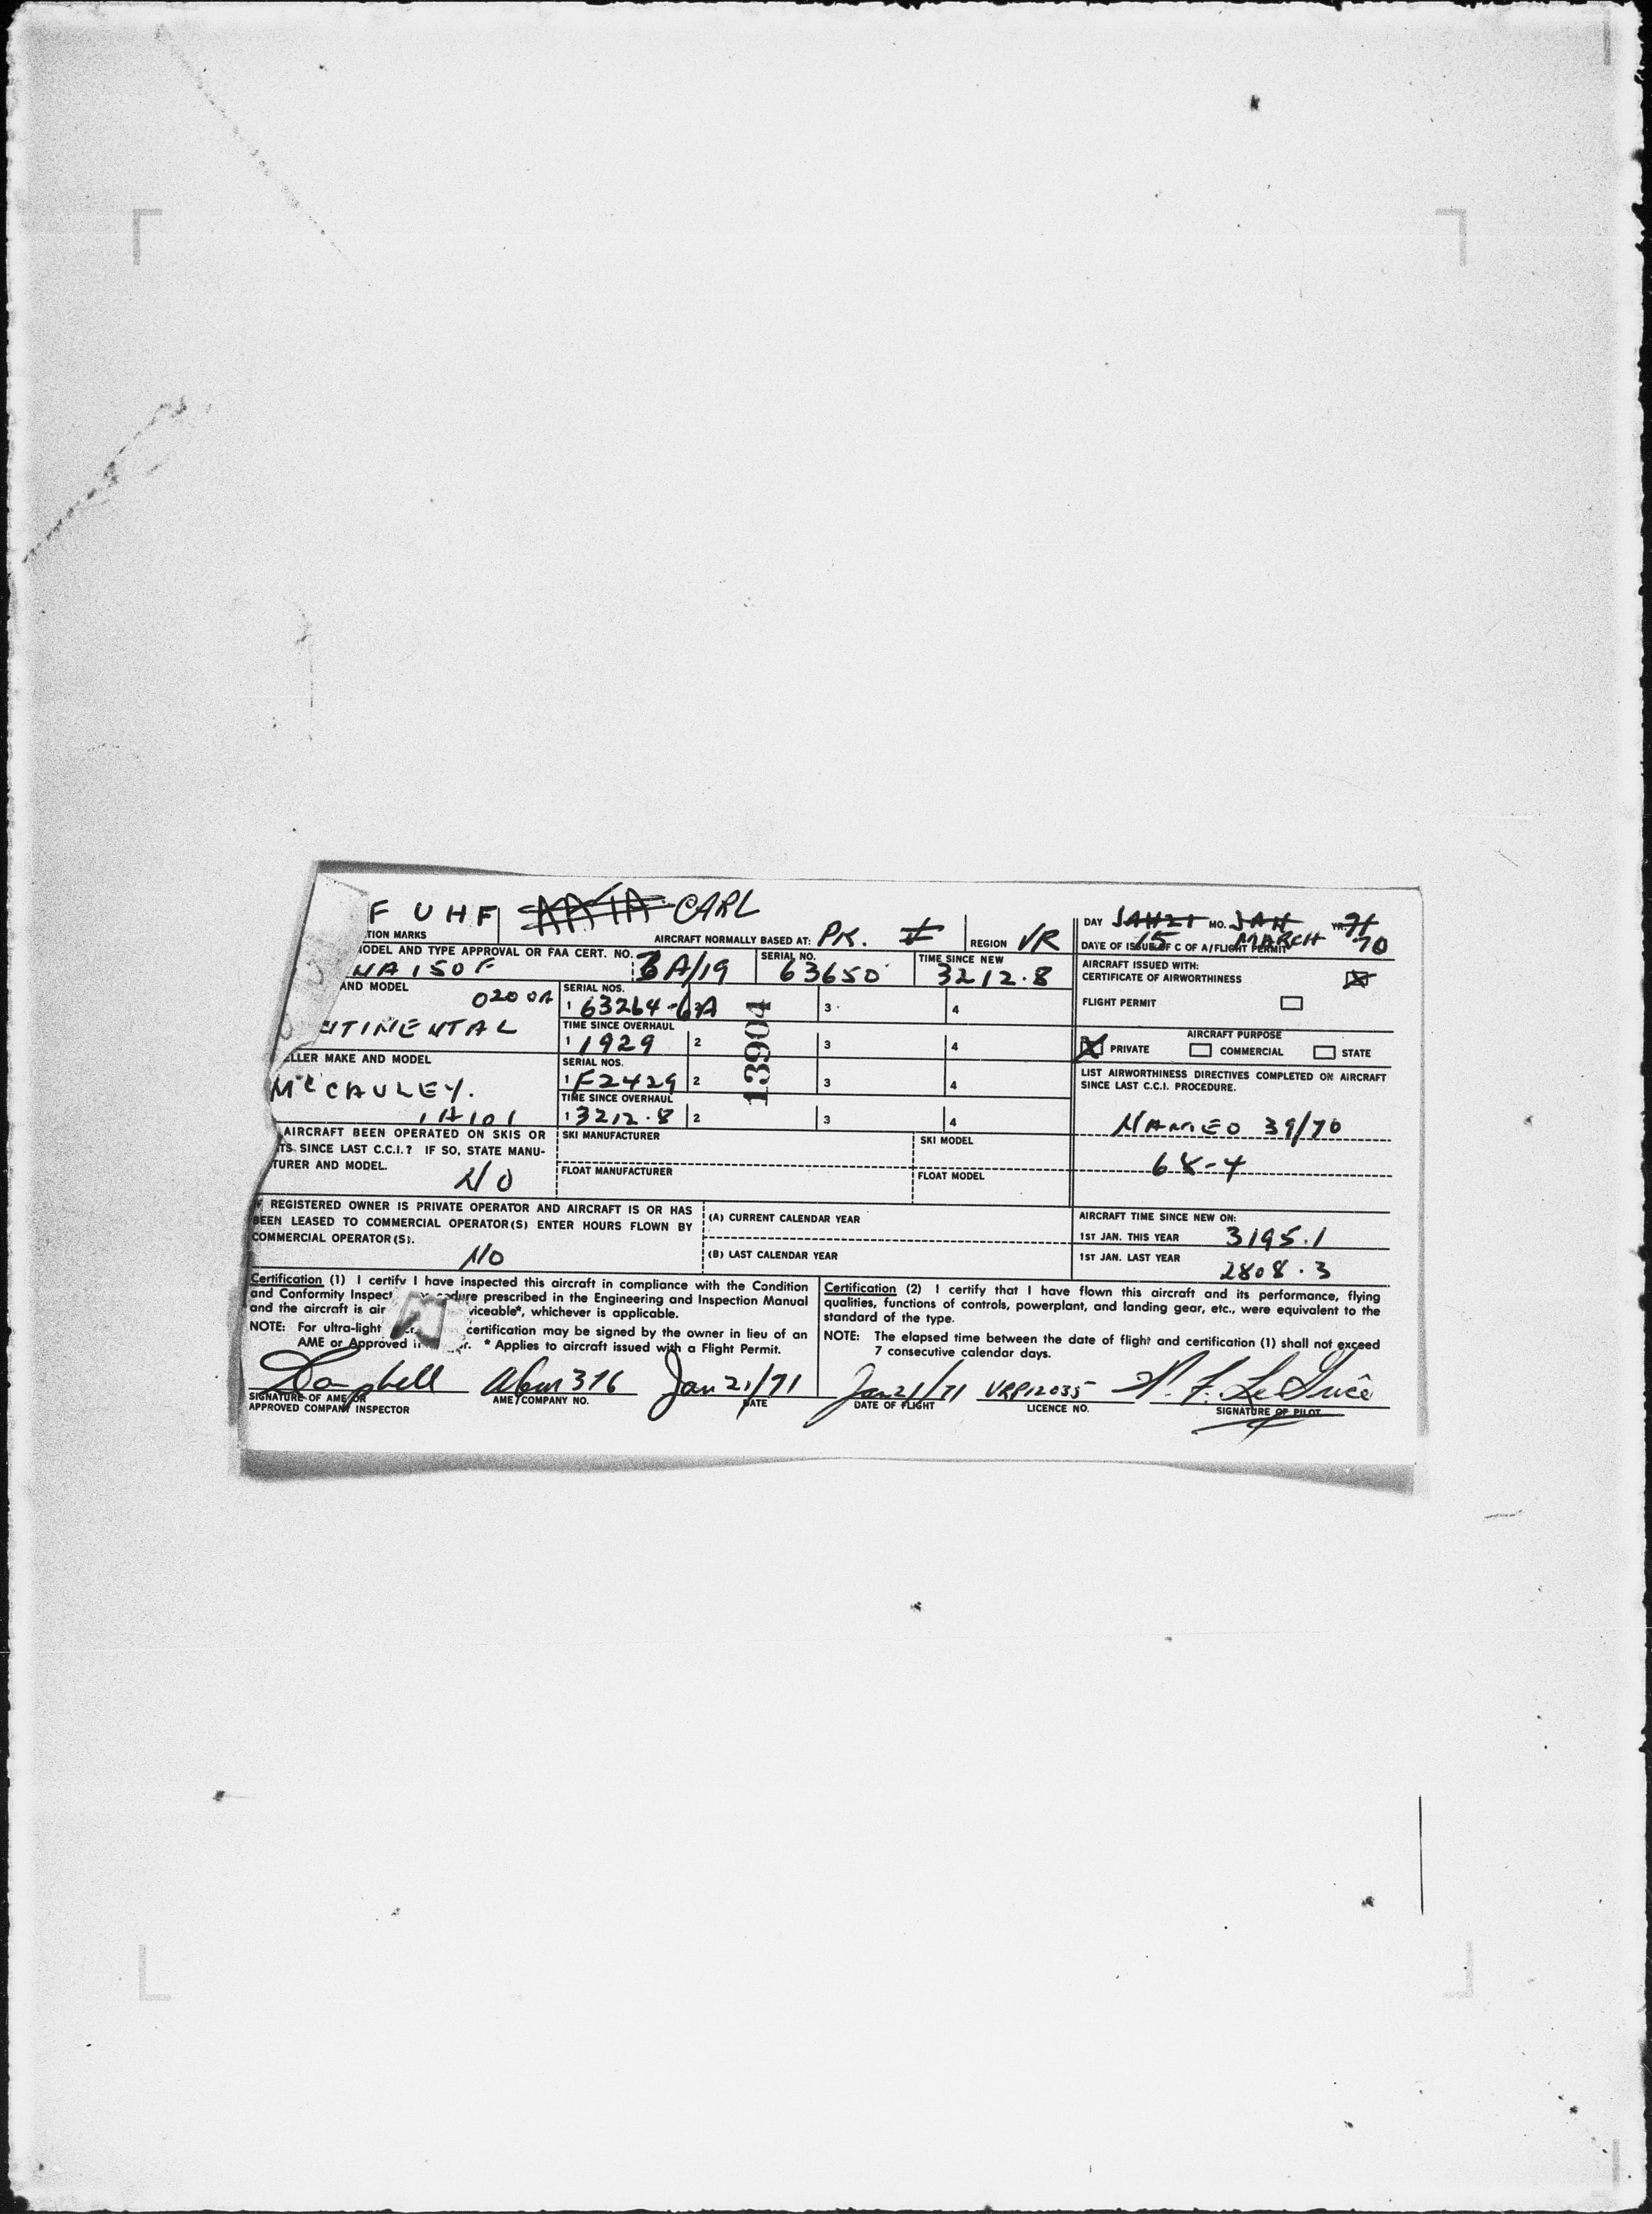 F UHF CARL
TION MARKS AIRCRAFT NORMALLY BASED AT: PK. REGION VR
DAY JAN 21 MO. JAN YR. 71
15 MARCH 70
DATE OF ISSUE OF C OF A/FLIGHT PERMIT
ODEL AND TYPE APPROVAL OR FAA CERT. NO. SERIAL NO. TIME SINCE NEW
NA 150 F 3A/19 63650 3212.8
AIRCRAFT ISSUED WITH:
CERTIFICATE OF AIRWORTHINESS
FLIGHT PERMIT
AND MODEL SERIAL NOS.
0200A 1 63264-6A 3 4
NTINENTAL TIME SINCE OVERHAUL
1 1929 2 3 4
13904
AIRCRAFT PURPOSE
PRIVATE COMMERCIAL STATE
ELLER MAKE AND MODEL SERIAL NOS.
McCAULEY. 1 F2429 2 3 4
TIME SINCE OVERHAUL
1A101 1 3212.8 2 3 4
LIST AIRWORTHINESS DIRECTIVES COMPLETED ON AIRCRAFT
SINCE LAST C.C.I. PROCEDURE.
NAMEO 39/70
68-4
AIRCRAFT BEEN OPERATED ON SKIS OR
TS SINCE LAST C.C.I.? IF SO, STATE MANU-
TURER AND MODEL.
NO
SKI MANUFACTURER SKI MODEL
FLOAT MANUFACTURER FLOAT MODEL
IF REGISTERED OWNER IS PRIVATE OPERATOR AND AIRCRAFT IS OR HAS
BEEN LEASED TO COMMERCIAL OPERATOR(S) ENTER HOURS FLOWN BY
COMMERCIAL OPERATOR(S).
NO
(A) CURRENT CALENDAR YEAR
(B) LAST CALENDAR YEAR
AIRCRAFT TIME SINCE NEW ON:
1ST JAN. THIS YEAR 3195.1
1ST JAN. LAST YEAR 2808.3
Certification (1) I certify I have inspected this aircraft in compliance with the Condition
and Conformity Inspect edure prescribed in the Engineering and Inspection Manual
and the aircraft is air viceable*, whichever is applicable.
NOTE: For ultra-light certification may be signed by the owner in lieu of an
AME or Approved i r. * Applies to aircraft issued with a Flight Permit.
Certification (2) I certify that I have flown this aircraft and its performance, flying
qualities, functions of controls, powerplant, and landing gear, etc., were equivalent to the
standard of the type.
NOTE: The elapsed time between the date of flight and certification (1) shall not exceed
7 consecutive calendar days.
Campbell 316 Jan 21/71 Jan 21/71 VRP12035
SIGNATURE OF AME OR AME/COMPANY NO. DATE DATE OF FLIGHT LICENCE NO. SIGNATURE OF PILOT
APPROVED COMPANY INSPECTOR